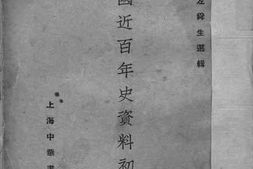 左舜生選輯
國近百年史資料初
上海中華書